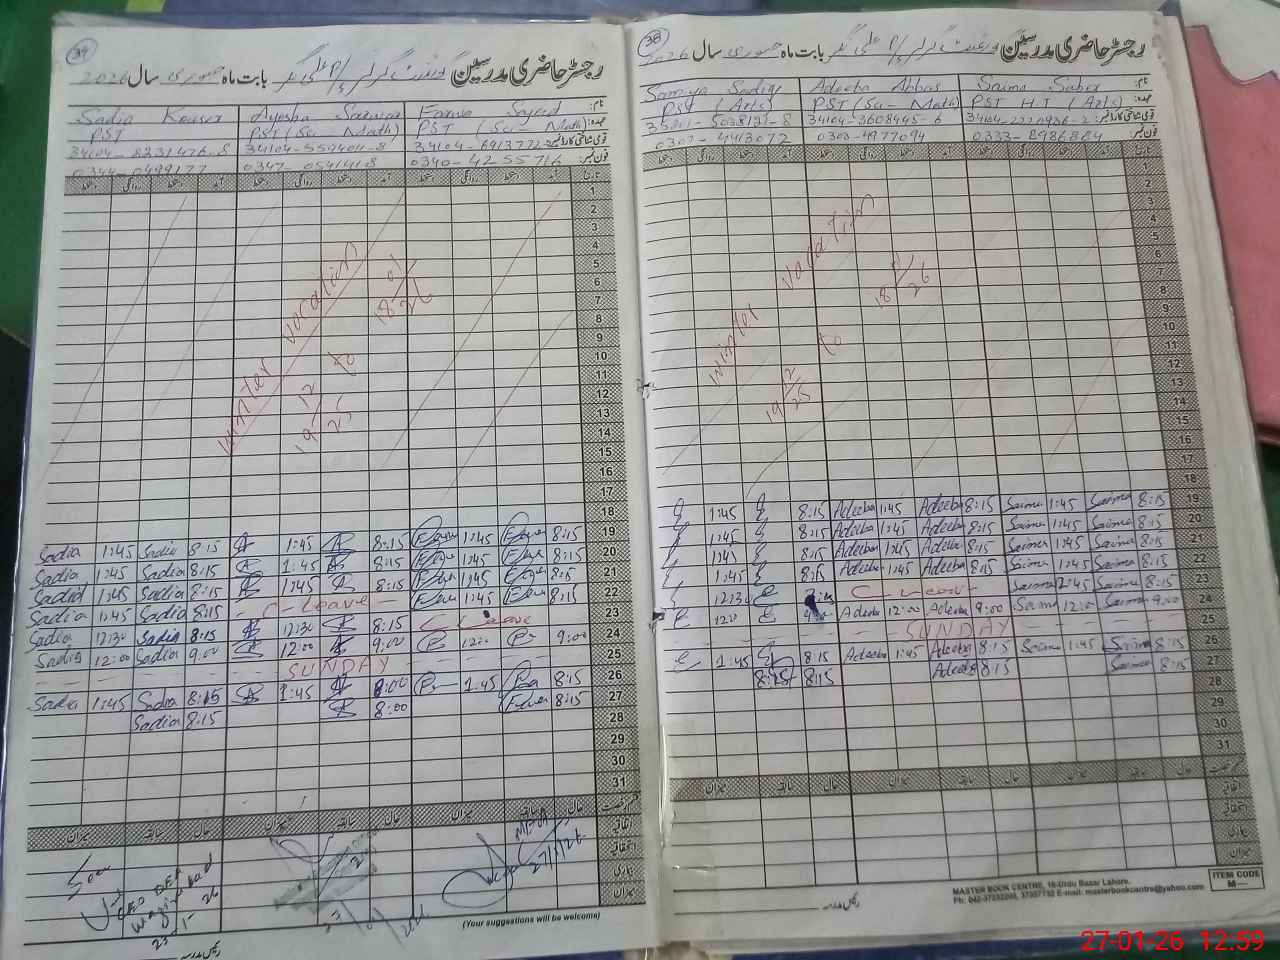 38
رجسٹر حاضری مدرسین گورنمنٹ گرلز P/S علی نگر بابت ماہ جنوری سال 2026
نام: Saima Saber Adeeba Abbas Samiya Sadiq
عہدہ: PST H.T (Arts) PST (Sci-Math) PST (Arts)
قومی شناختی کارڈ نمبر: 34104-3608445-6
فون نمبر: 0333-8986884 0303-4977094 0307-4413072
تاریخ آمد دستخط روانگی دستخط
1
2
3
4
5
6
7
8
9
10
11
12
13
14
15
16
17
18
winter vacation
19/12/25 to 18/01/26
19 8:15 Saima 1:45 Saima 8:15 Adeeba 1:45 Adeeba 8:15 1:45
20 8:15 Saima 1:45 Saima 8:15 Adeeba 1:45 Adeeba 8:15 1:45
21 8:15 Saima 1:45 Saima 8:15 Adeeba 1:45 Adeeba 8:15 1:45
22 8:15 Saima 1:45 Saima 8:15 Adeeba 1:45 Adeeba 8:15 1:45
23 8:15 Saima 12:45 Saima C-Leave 12:30
24 9:00 Saima 12:00 Saima 9:00 Adeeba 12:00 Adeeba 1200
25 SUNDAY
26 8:15 Saima 1:45 Saima 8:15 Adeeba 1:45 Adeeba 8:15 1:45
27 8:15 Saima 8:15 Adeeba 8:15
28
29
30
31
قسم رخصت حال سابقہ میزان
اتفاقیہ
استحقاقیہ
بیماری
میزان
رئیس مدرسہ
MASTER BOOK CENTRE, 16-Urdu Bazar Lahore.
E-mail: masterbookcentre@yahoo.com
ITEM CODE
M—
39
رجسٹر حاضری مدرسین گورنمنٹ گرلز P/S علی نگر بابت ماہ جنوری سال 2026
نام: Farwa Sayed Ayesha Sadia Kausar
عہدہ: PST (Sci-Math) PST (Sci-Math) PST
قومی شناختی کارڈ نمبر: 34104-8231476-8
فون نمبر: 0340-4255716 0347-0541418 0344-0499177
تاریخ آمد دستخط روانگی دستخط
1
2
3
4
5
6
7
8
9
10
11
12
13
14
15
16
17
18
winter vacation
19/12/25 to 18/01/26
19 8:15 1:45 8:15 1:45 8:15 Sadia 1:45 Sadia
20 8:15 1:45 8:15 1:45 8:15 Sadia 1:45 Sadia
21 8:15 1:45 8:15 1:45 8:15 Sadia 1:45 Sadia
22 8:15 1:45 C-Leave 8:15 Sadia 1:45 Sadia
23 C-Leave 8:15 12:30 8:15 Sadia 12:30 Sadia
24 9:00 1200 9:00 12:00 9:00 Sadia 12:00 Sadia
25 SUNDAY
26 8:15 1:45 8:00 1:45 8:15 Sadia 1:45 Sadia
27 8:15 8:00 8:15 Sadia
28
29
30
31
قسم رخصت حال سابقہ میزان
اتفاقیہ
استحقاقیہ
بیماری
میزان
27/1/26
Wazirabad
(Your suggestions will be welcome)
رئیس مدرسہ
27-01-26 12:59